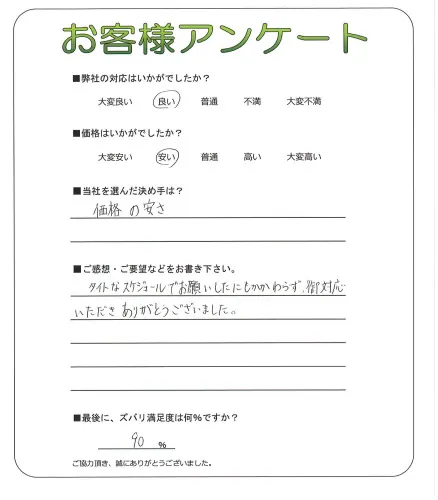 お客様アンケート
■弊社の対応はいかがでしたか?
大変良い 良い 普通 不満 大変不満
■価格はいかがでしたか?
大変安い 安い 普通 高い 大変高い
■当社を選んだ決め手は?
価格の安さ
■ご感想・ご要望などをお書き下さい。
タイトなスケジュールでお願いしたにもかかわらず、御対応
いただきありがとうございました。
■最後に、ズバリ満足度は何%ですか?
90 %
ご協力頂き、誠にありがとうございました。